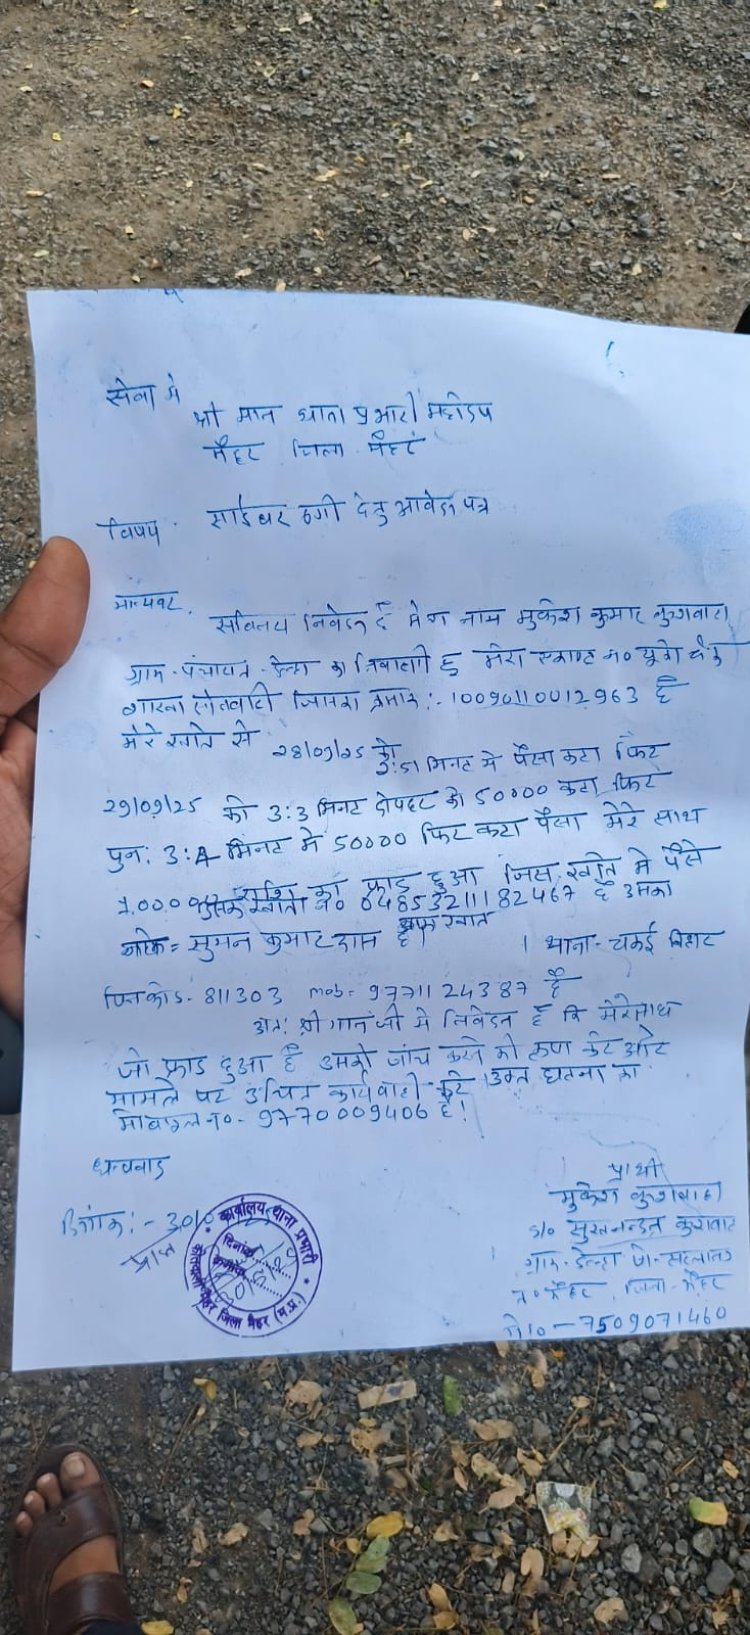 सेवा मे
श्री मान थाना प्रभारी महोदय
मैहर जिला मैहर
विषय साईबर ठगी हेतु आवेदन पत्र
मान्यवर,
सविनय निवेदन है मेरा नाम मुकेश कुमार कुशवाहा
ग्राम-पंचायत का निवासी हु मेरा एकाउण्ट न० यूको बैंक
शाखा सोनवारी जिसका क्रमांक :- 10090110012963 है
मेरे खाते से 28/09/25 को 3:51 मिनट मे पैसा कटा फिर
29/09/25 को 3:3 मिनट दोपहर को 50000 कटा फिर
पुन: 3:4 मिनट में 50000 फिर कटा पैसा मेरे साथ
राशि का फ्राड हुआ जिस खाते मे पैसे
उसका खाता न० 0485321118 2467 है उसका
सुमन कुमार दास है। । थाना- चकई बिहार
पिनकोड- 811303 mob= 9771124387 है
अत: श्री मान जी से निवेदन है कि मेरे साथ
जो फ्राड हुआ है उसकी जांच करने की कृपा करे और
मामले पर उचित कार्यवाही करे उक्त घटना का
मोबाइल न०- 9770009406 है!
धन्यवाद
दिनांक:- 30/0
प्राप्त
कार्यालय थाना प्रभारी
दिनांक
क्रमांक
मैहर जिला मैहर (म.प्र.)
प्रार्थी
मुकेश कुशवाहा
s/o सुखनन्दन कुशवाह
ग्राम-
त० मैहर, जिला- मैहर
मो० - 7509071460